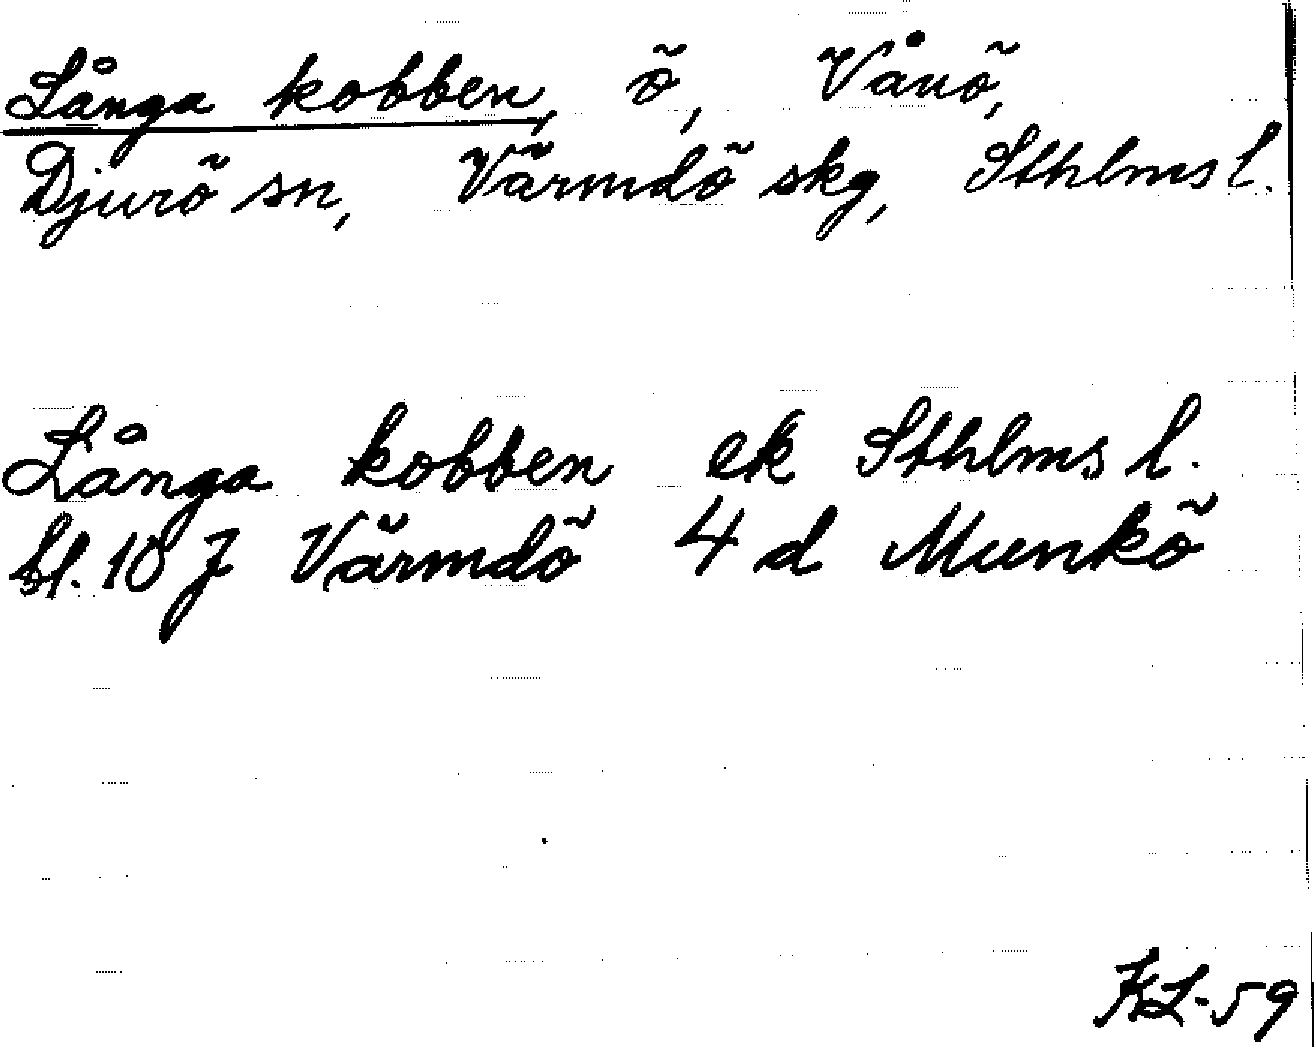 Långa kobben, ö, Vånö,
Djurö sn, Värmdö skg, Sthlms l.
Långa kobben ek Sthlms l.
bl. 10 J Värmdö 4 d Munkö
KL-59